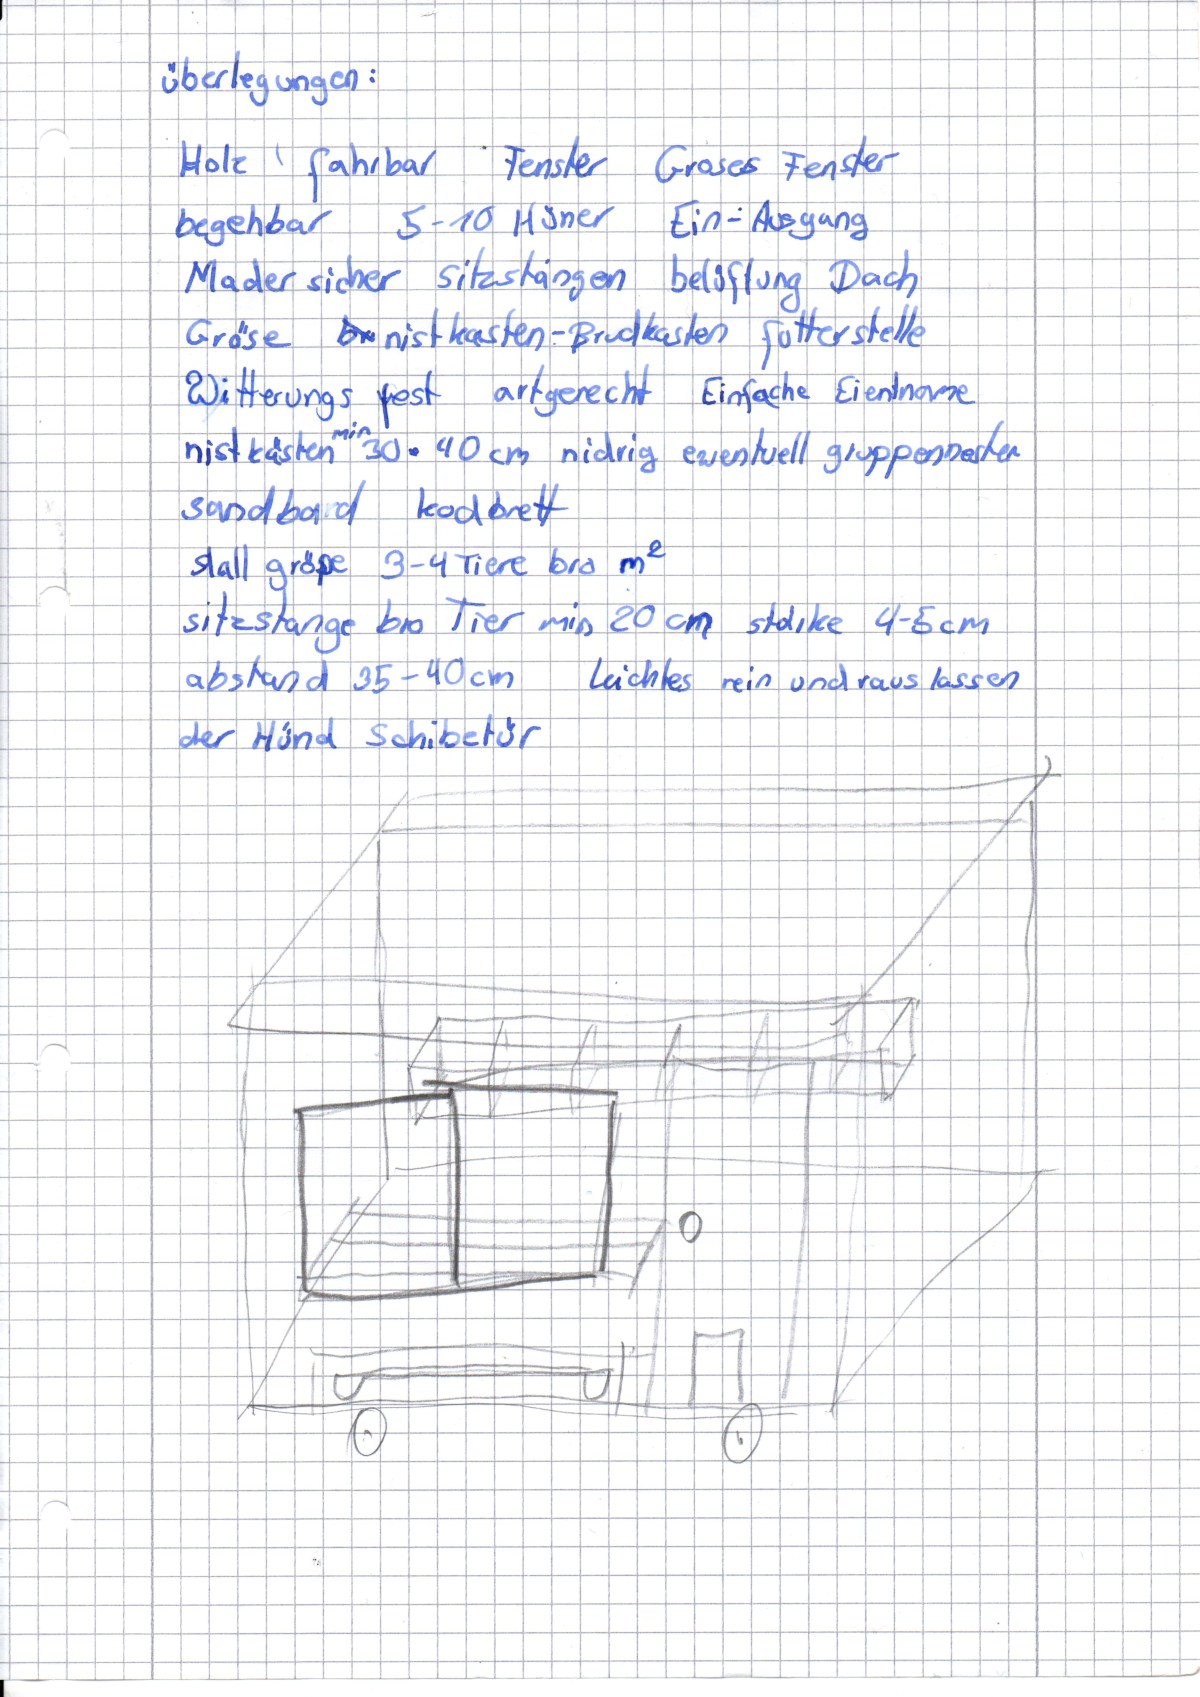 überlegungen:
Holz fahrbar Fenster Groses Fenster
begehbar 5-10 Hüner Ein-Ausgang
Mader sicher sitzstangen belüftung Dach
Gröse nistkasten-Brudkasten futterstelle
Witterungs fest artgerecht Einfache Eientname
nistkästen min 30 • 40 cm nidrig eventuell gruppennester
sandbard kodbrett
stall größe 3-4 Tiere bro m²
sitzstange bro Tier min 20 cm stärke 4-5cm
abstand 35-40cm Leichtes rein und raus lassen
der Hünd Schibetür